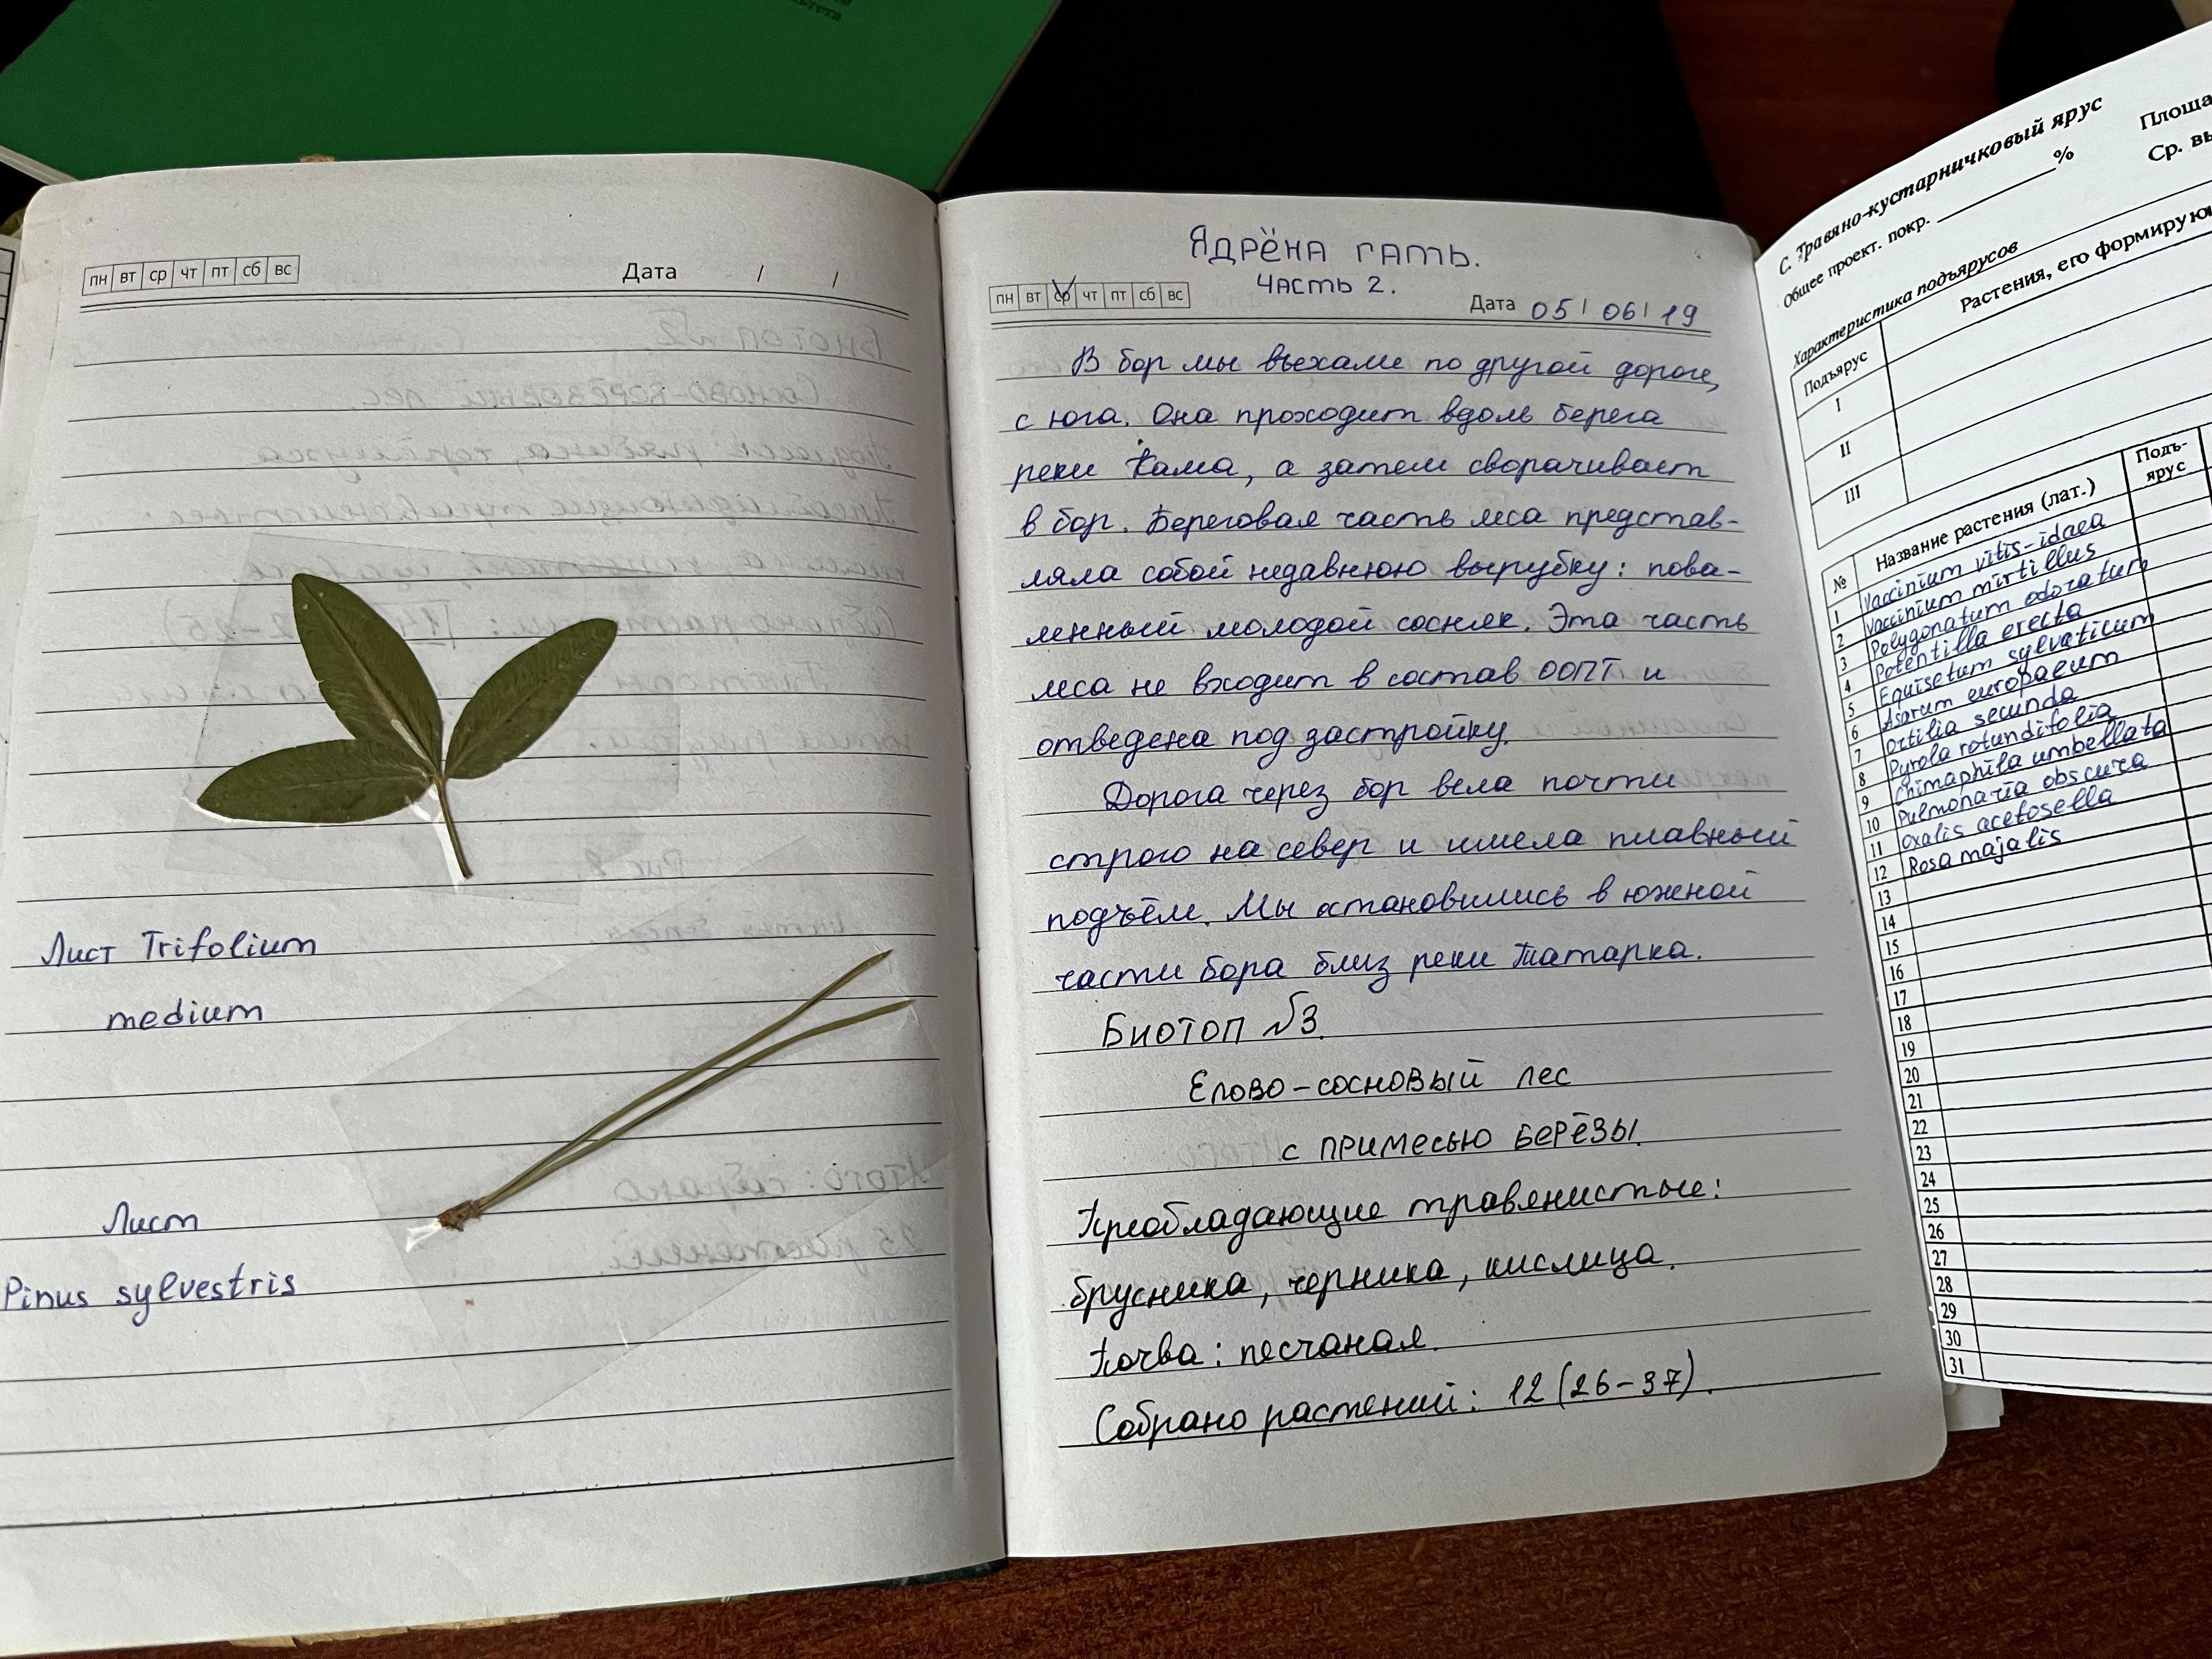 пн вт ср чт пт сб вс
Дата / /
Лист Trifolium
medium
Лист
Pinus sylvestris
Ядрёна гать.
Часть 2.
пн вт ср чт пт сб вс
Дата 05/06/19
В бор мы въехали по другой дороге,
с юга. Она проходит вдоль берега
реки Кама, а затем сворачивает
в бор. Береговая часть леса представ-
ляла собой недавнюю вырубку: пова-
ленный молодой сосняк. Эта часть
леса не входит в состав ООПТ и
отведена под застройку.
Дорога через бор вела почти
строго на север и имела плавный
подъём. Мы остановились в южной
части бора близ реки Татарка.
Биотоп №3.
Елово-сосновый лес
с примесью берёзы.
Преобладающие травянистые:
брусника, черника, кислица.
Почва: песчаная.
Собрано растений: 12 (26-37).
С. Травяно-кустарничковый ярус
Общее проект. покр. %
Ср.
Характеристика подъярусов
Подъярус
Растения, его
I
II
III
№ Название растения (лат.) Подъ-
ярус
1 Vaccinium vitis-idaea
2 Vaccinium mirtillus
3 Polygonatum odoratum
4 Potentilla erecta
5 Equisetum sylvaticum
6 Asarum europaeum
7 Ortilia secunda
8 Pyrola rotundifolia
9 Chimaphila umbellata
10 Pulmonaria obscura
11 Oxalis acetosella
12 Rosa majalis
13
14
15
16
17
18
19
20
21
22
23
24
25
26
27
28
29
30
31